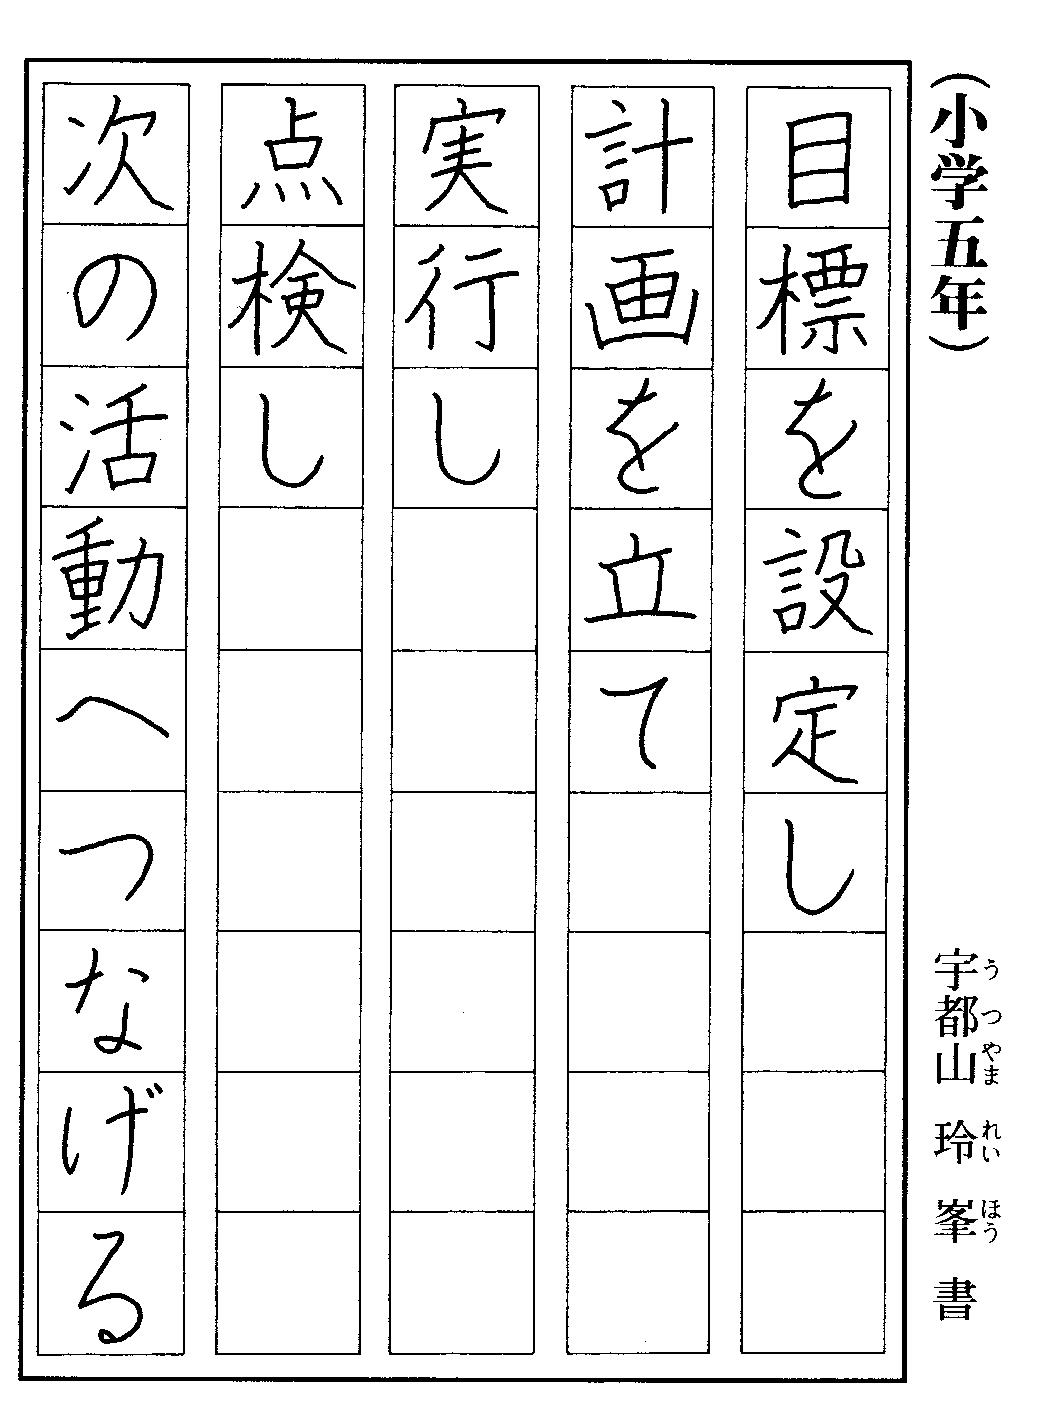 （小学五年）
宇都山玲峯書
うつやまれいほう
目標を設定し
計画を立て
実行し
点検し
次の活動へつなげる